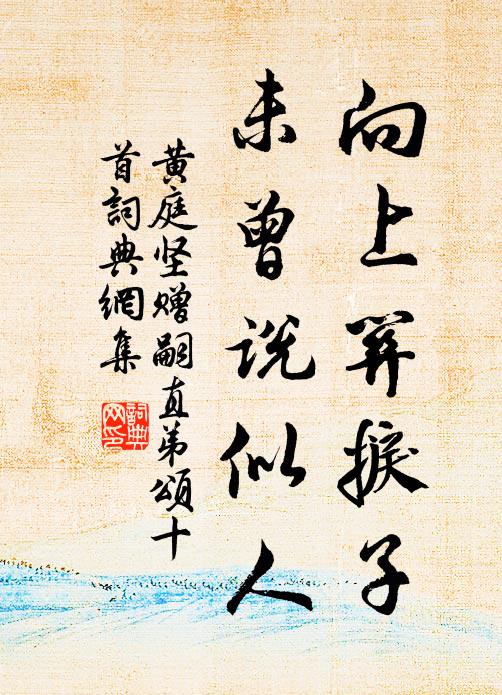 向上关捩子
未曾说似人
黄庭坚赠嗣直弟颂十
首词典網集
詞典網印